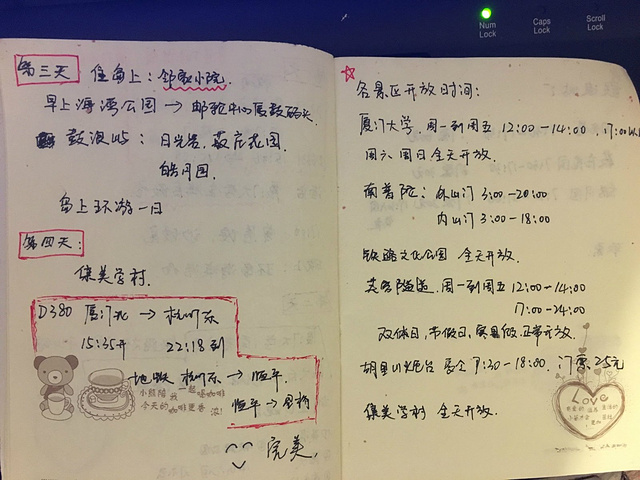 Num Lock
Caps Lock
Scroll Lock
第三天 住岛上:邻家小院.
早上海湾公园 → 邮轮中心厦鼓码头.
鼓浪屿: 日光岩, 菽庄花园.
皓月园.
岛上环游一日
第四天:
集美学村.
D380 厦门北 → 杭州东
15:35开 22:18到
地铁 杭州东 → 临平.
临平 →
小熊陪我一起喝咖啡
今天的咖啡更香浓!
完美.
☆ 各景区开放时间:
厦门大学. 周一到周五 12:00-14:00. 17:00以
周六周日全天开放.
南普陀: 外山门 3:00-20:00
内山门 3:00-18:00
铁路文化公园 全天开放.
芙蓉隧道. 周一到周五 12:00-14:00
17:00-24:00
双休日, 节假日, 寒暑假. 正常开放.
胡里山炮台 7:30-18:00. 门票25元
集美学村 全天开放.
Love